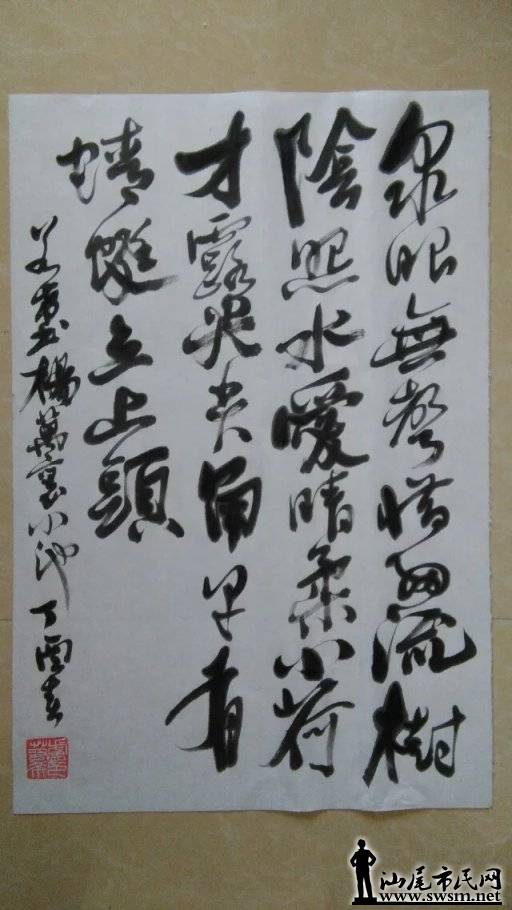 泉眼無聲惜細流樹
陰照水愛晴柔小荷
才露尖尖角早有
蜻蜓立上頭
楊萬裏小池 丁酉春
汕尾市民网
www.swsm.net